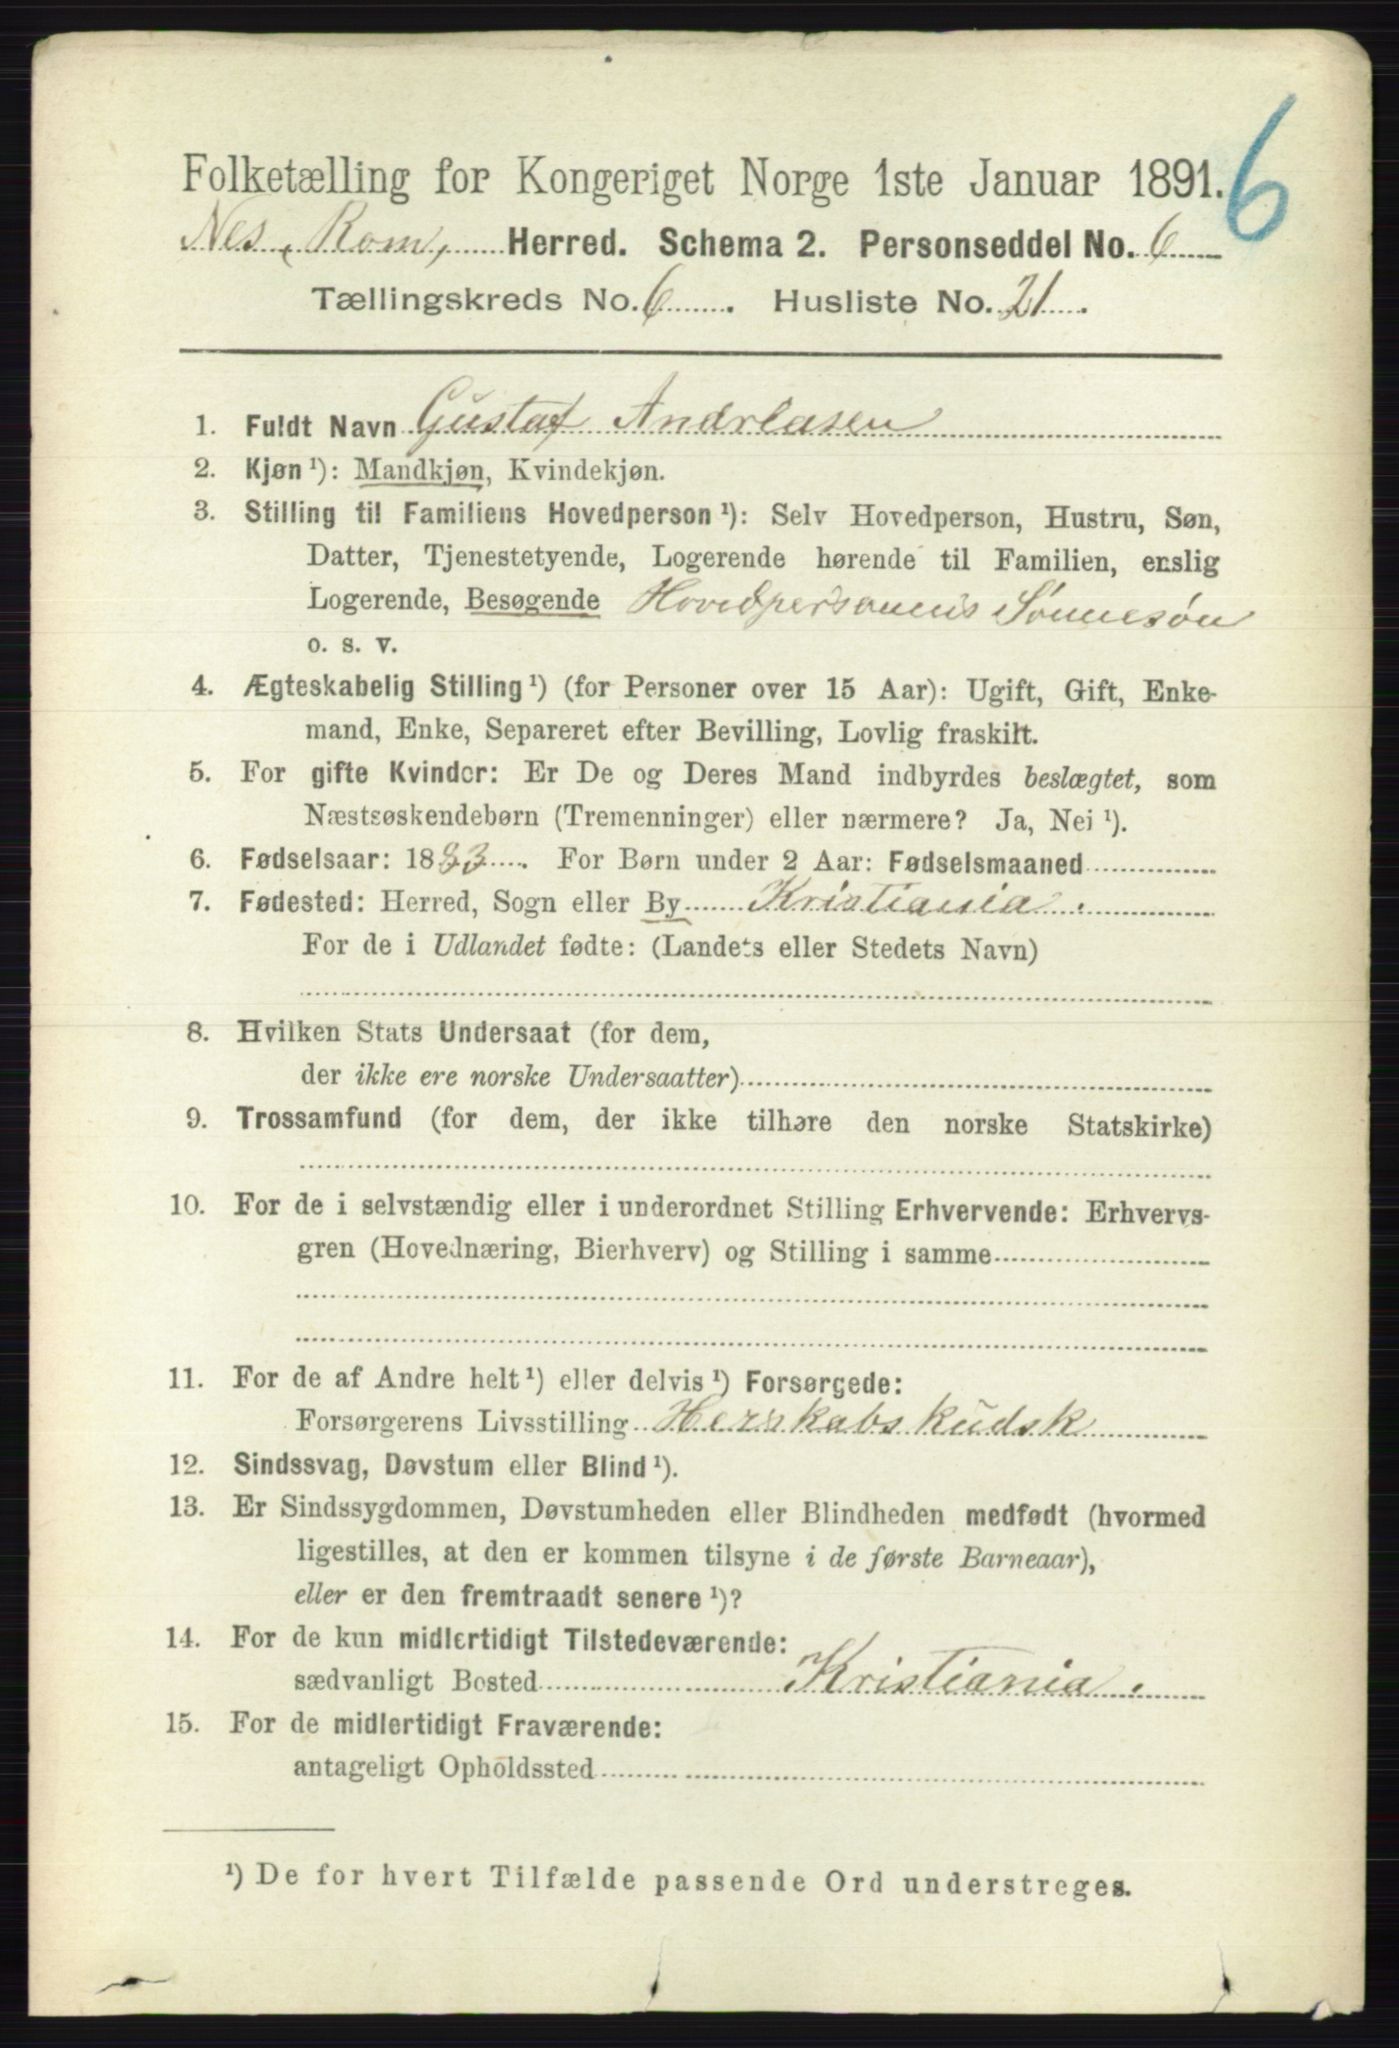 6
Folketælling for Kongeriget Norge 1ste Januar 1891.
Nes, Rom, Herred. Schema 2. Personseddel No. 6
Tællingskreds No. 6. Husliste No. 21.
1. Fuldt Navn Gustaf Andreasen
2. Kjøn¹): Mandkjøn, Kvindekjøn.
3. Stilling til Familiens Hovedperson¹): Selv Hovedperson, Hustru, Søn,
Datter, Tjenestetyende, Logerende hørende til Familien, enslig
Logerende, Besøgende Hovedpersonens Sønnesøn
o. s. v.
4. Ægteskabelig Stilling¹) (for Personer over 15 Aar): Ugift, Gift, Enke-
mand, Enke, Separeret efter Bevilling, Lovlig fraskilt.
5. For gifte Kvinder: Er De og Deres Mand indbyrdes beslægtet, som
Næstsøskendebørn (Tremenninger) eller nærmere? Ja, Nei¹).
6. Fødselsaar: 1883. For Børn under 2 Aar: Fødselsmaaned
7. Fødested: Herred, Sogn eller By Kristiania.
For de i Udlandet fødte: (Landets eller Stedets Navn)
8. Hvilken Stats Undersaat (for dem,
der ikke ere norske Undersaatter)
9. Trossamfund (for dem, der ikke tilhøre den norske Statskirke)
10. For de i selvstændig eller i underordnet Stilling Erhvervende: Erhvervs-
gren (Hovednæring, Bierhverv) og Stilling i samme
11. For de af Andre helt¹) eller delvis¹) Forsørgede:
Forsørgerens Livsstilling Herskabskudsk
12. Sindssvag, Døvstum eller Blind¹).
13. Er Sindssygdommen, Døvstumheden eller Blindheden medfødt (hvormed
ligestilles, at den er kommen tilsyne i de første Barneaar),
eller er den fremtraadt senere¹)?
14. For de kun midlertidigt Tilstedeværende:
sædvanligt Bosted Kristiania.
15. For de midlertidigt Fraværende:
antageligt Opholdssted
¹) De for hvert Tilfælde passende Ord understreges.